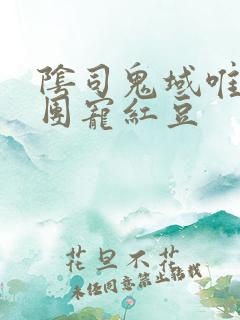 陰司鬼域唯
團寵紅豆
花旦不花
未經同意禁止轉載